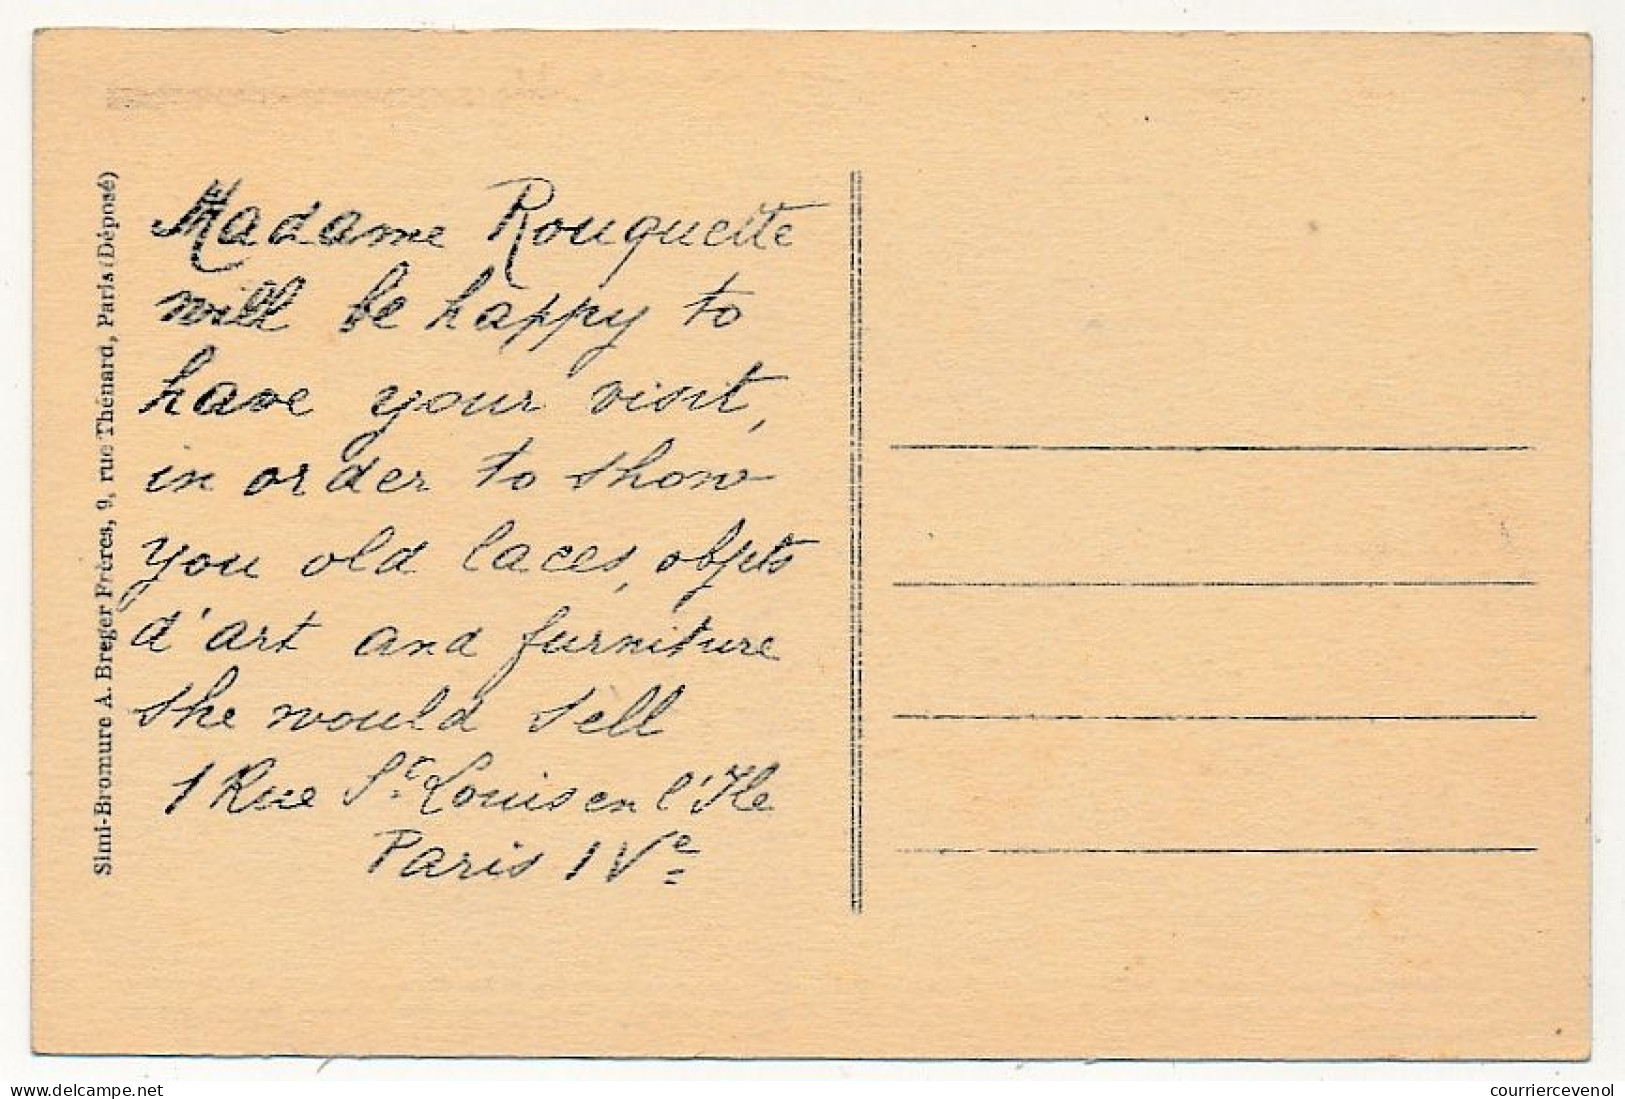 Simi-Bromure A. Breger Frères, 9, rue Thénard, Paris (Déposé)
Madame Rouquette
will be happy to
have your visit,
in order to show
you old laces, objets
d'art and furniture
she would sell
1 Rue St Louis en l'Ile
Paris IVe
courriercevenol